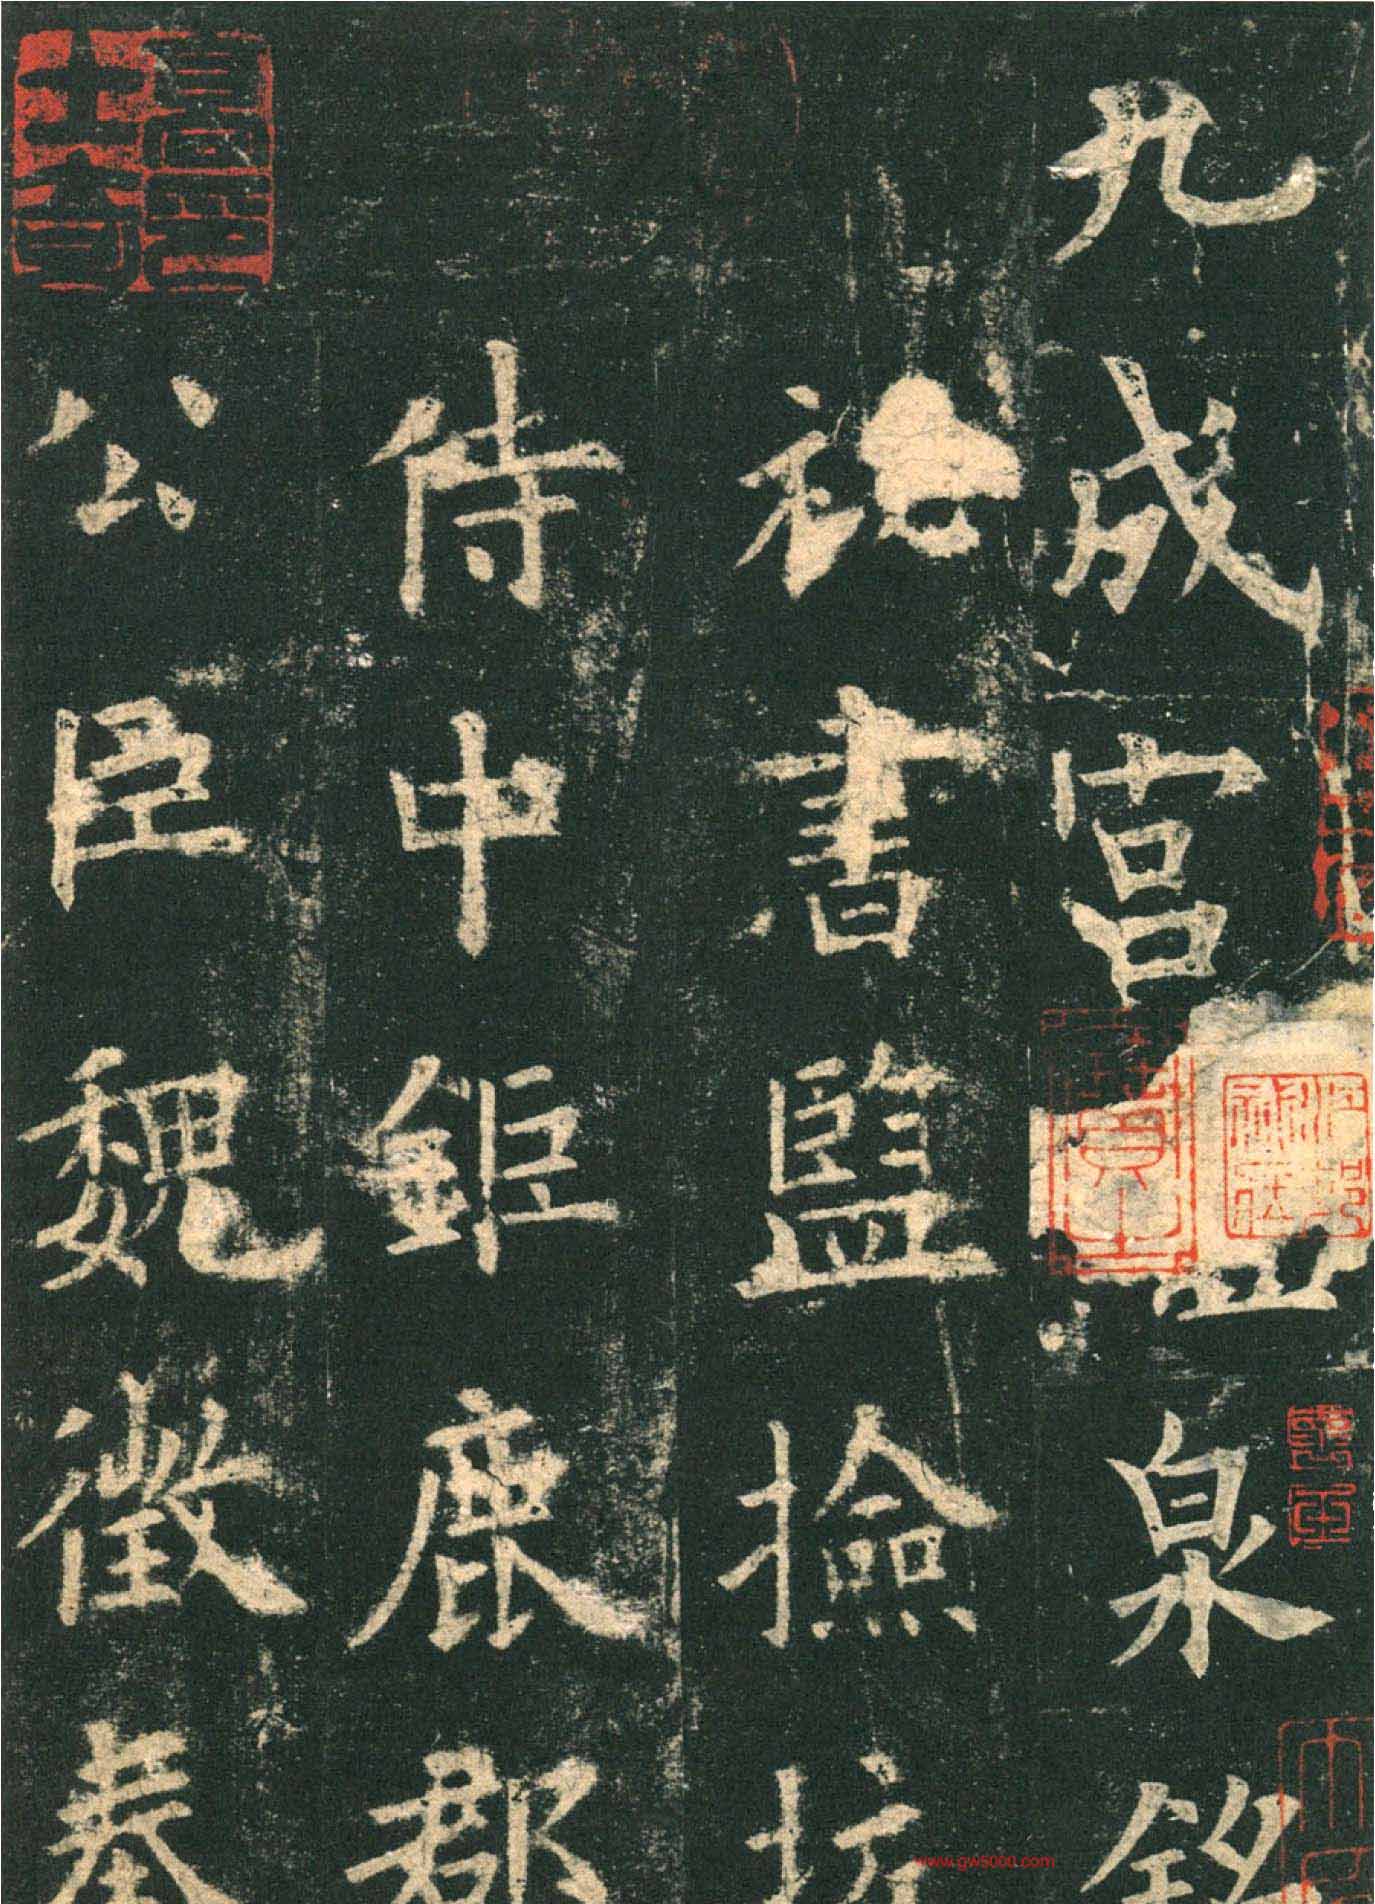 九成宮醴泉銘
祕書監撿挍
侍中鉅鹿郡
公臣魏徵奉
www.gw5000.com